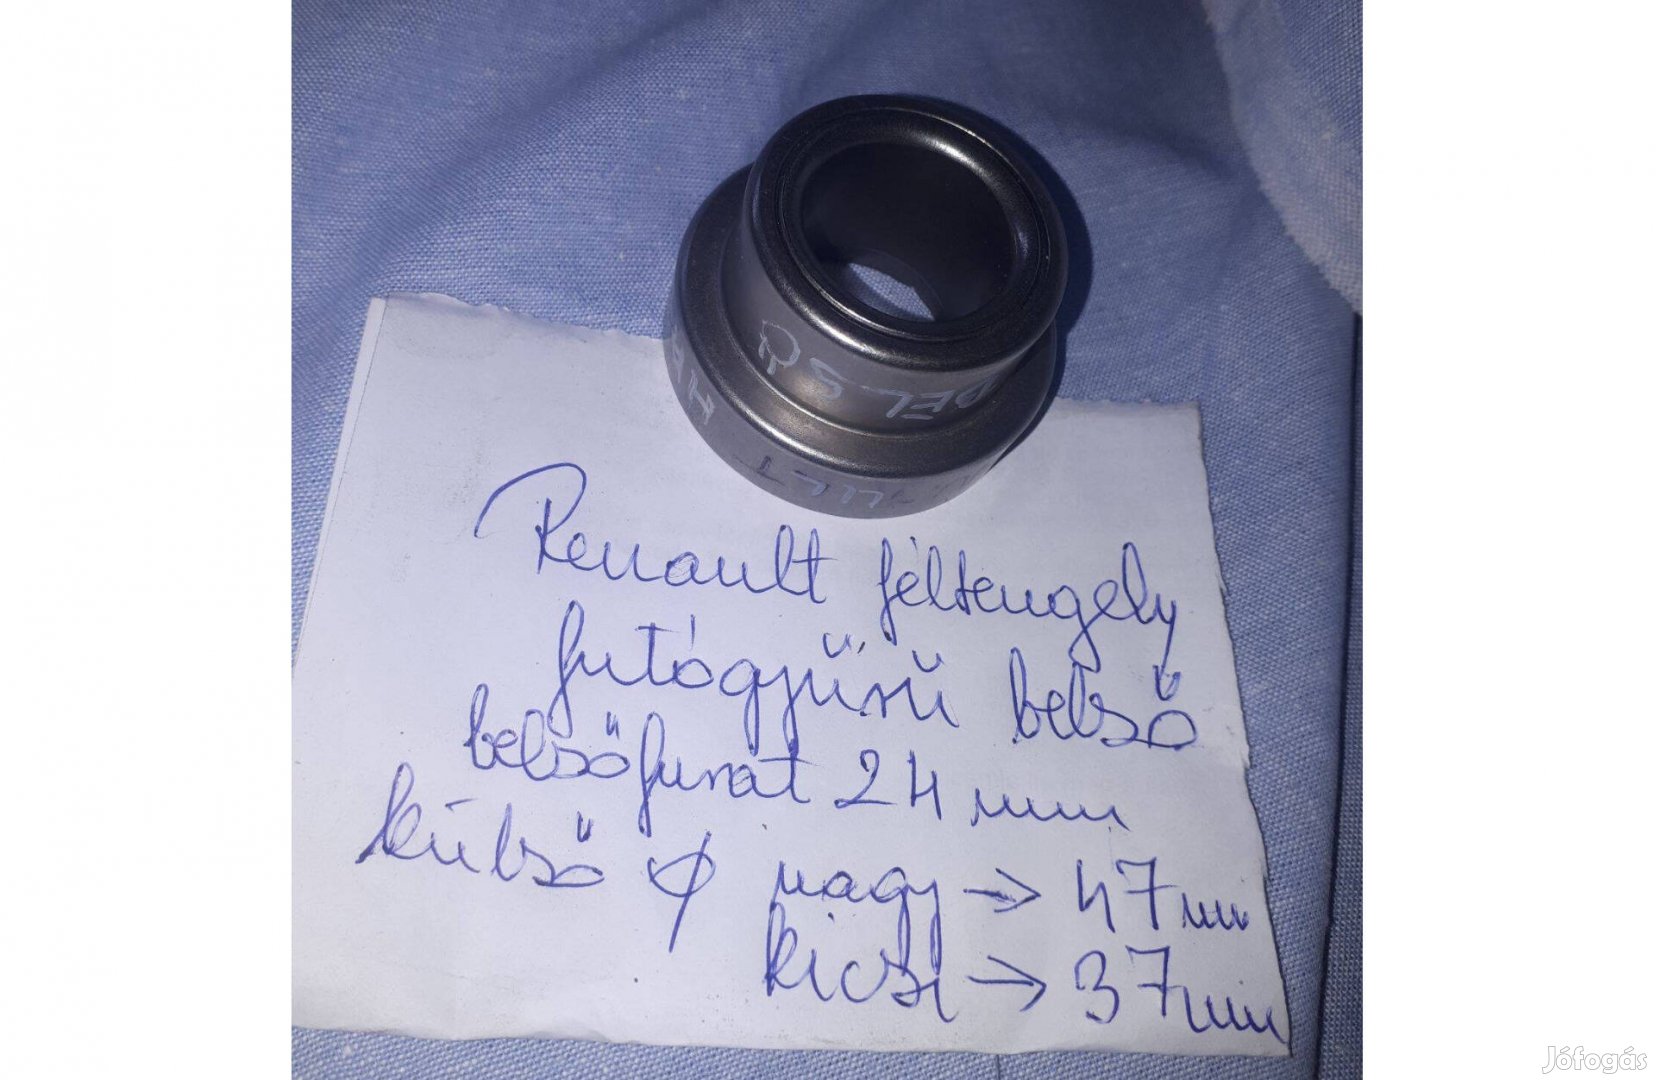 Renault féltengely
futógyűrű belső
belsőfurat 24 mm
külső φ nagy → 47 mm
kicsi → 37 mm
Jófogás